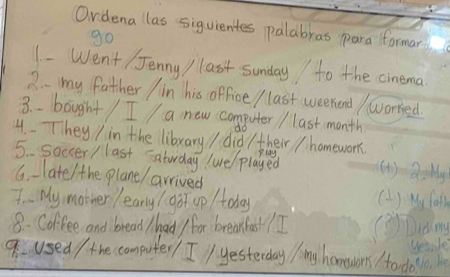 Ordena las siguientes palabras para formar
go
1.- Went / Jenny / last sunday / to the cinema.
2.- my father / in his office / last weekend / worked
3.- bought / I / a new computer / last month
do
4.- They / in the library / did / their / homework.
play
5.- Soccer / last saturday / we / played
6.- late / the plane / arrived
7.- My mother / early / got up / today
8.- Coffee and bread / had / for breakfast / I
9.- Used / the computer / I / yesterday / my homework / to do.
(+) 2. My
(-) My fath
(?) Did my